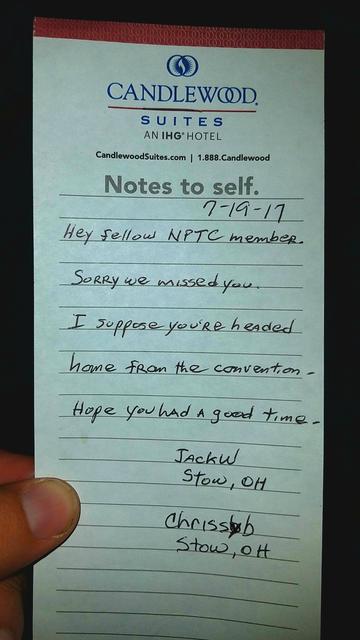 CANDLEWOOD
SUITES
AN IHG® HOTEL
CandlewoodSuites.com | 1.888.Candlewood
Notes to self.
7-19-17
Hey fellow NPTC member.
Sorry we missed you.
I suppose you're headed
home from the convention.
Hope you had a good time.
JackW
Stow, OH
Chrissbb
Stow, OH